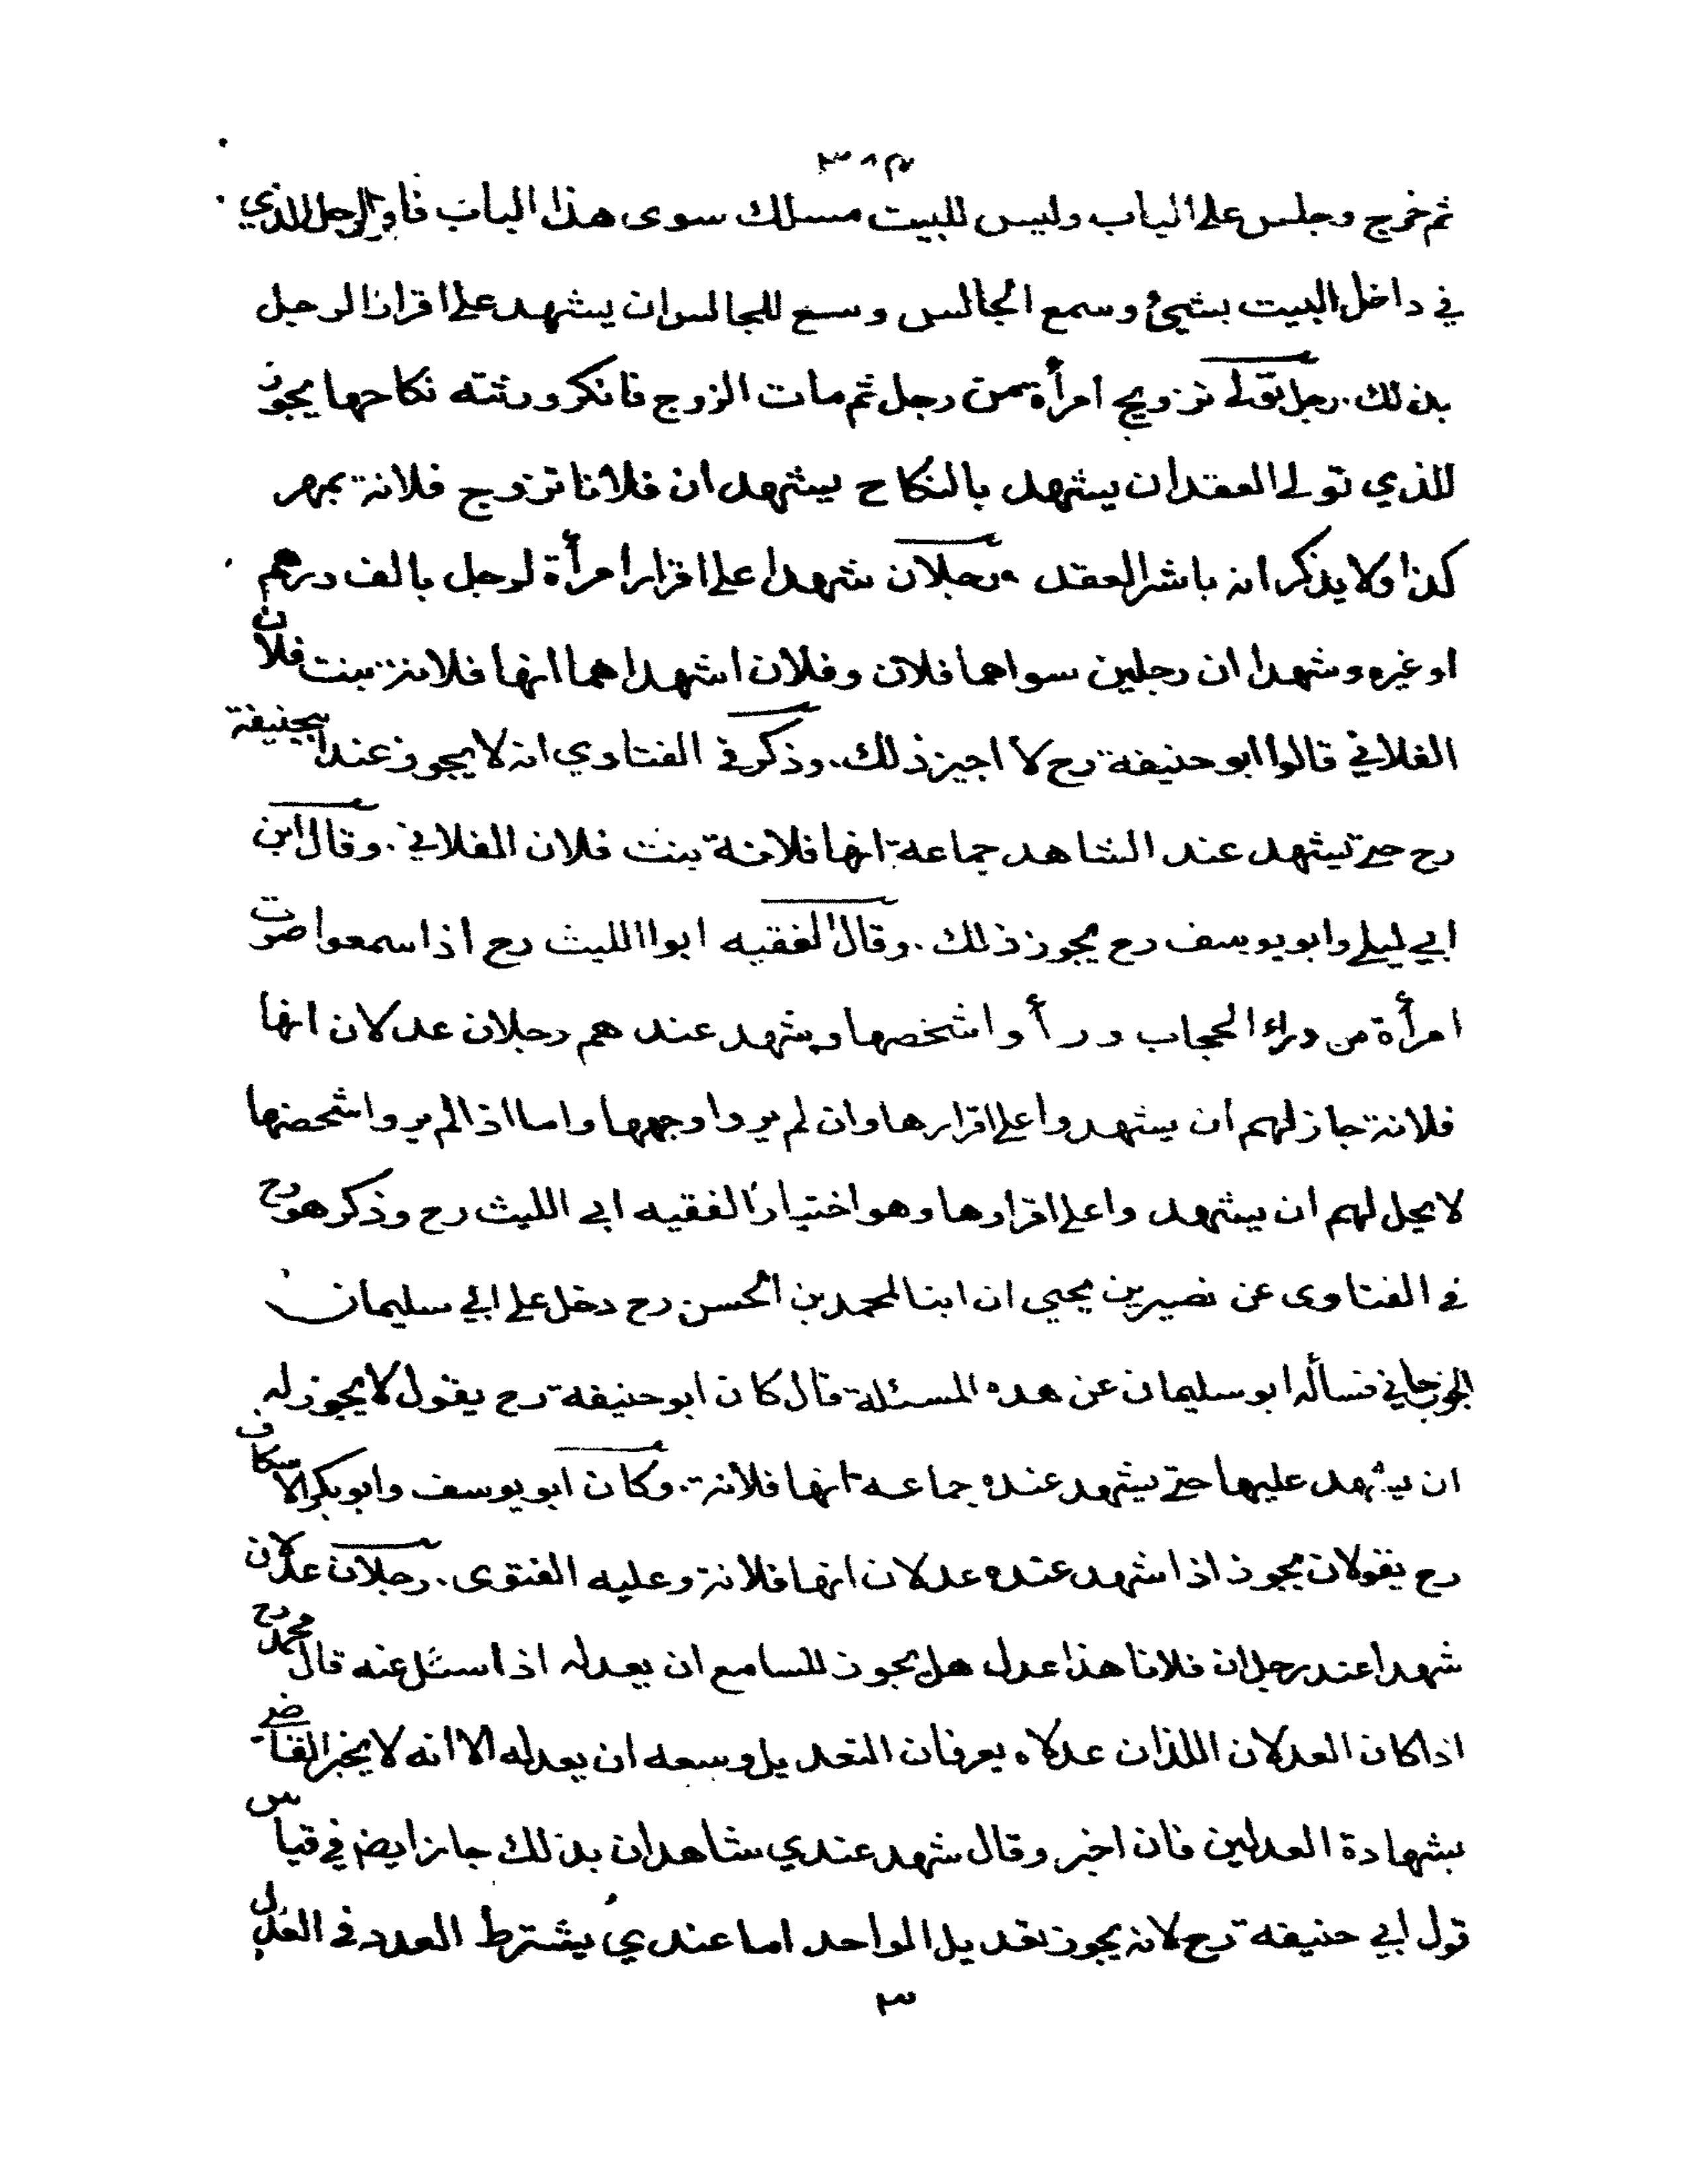 ٣١٣
ثم خرج وجلس على الباب وليس للبيت مسلك سوى هذا الباب فاقر الرجل الذي
في داخل البيت بشيئ وسمع الجالس وسع للجالس ان يشهد على اقرار الرجل
بذلك. رجل تولى تزويج امرأة من رجل ثم مات الزوج فانكر ورثته نكاحها يجوز
للذي تولى العقد ان يشهد بالنكاح يشهد ان فلانا تزوج فلانة بمهر
كذا ولا يذكر انه باشر العقد. رجلان شهدا على اقرار امرأة لرجل بالف درهم
او غيره وشهدا ان رجلين سواهما فلان وفلان اشهداهما انها فلانة بنت فلان
الفلاني قالوا ابو حنيفة رح لا اجيز ذلك. وذكر في الفتاوي انه لا يجوز عند ابيحنيفة
رح حتى تشهد عند الشاهد جماعة انها فلانة بنت فلان الفلاني. وقال ابن
ابي ليلى وابو يوسف رح يجوز ذلك. وقال الفقيه ابوا الليث رح اذا سمعوا صوت
امرأة من وراء الحجاب ورأوا شخصها ويشهد عندهم رجلان عدلان انها
فلانة جاز لهم ان يشهدوا على اقرارها وان لم يروا وجهها واما اذا لم يروا شخصها
لا يحل لهم ان يشهدوا على اقرارها وهو اختيار الفقيه ابي الليث رح وذكر هو رح
في الفتاوى عن نصير بن يحيي ان ابنا لمحمد بن الحسن رح دخل على ابي سليمان
الجوزجاني فسأله ابو سليمان عن هذه المسئلة قال كان ابو حنيفة رح يقول لا يجوز له
ان يشهد عليها حتى يشهد عنده جماعة انها فلانة. وكان ابو يوسف وابو بكر الاسكاف
رح يقولان يجوز اذا شهد عنده عدلان انها فلانة وعليه الفتوى. رجلان عدلان
شهدا عند رجل ان فلانا هذا عدل هل يجوز للسامع ان يعدله اذا سئل عنه قال محمد رح
اذا كان العدلان اللذان عدلاه يعرفان التعديل وسعه ان يعدله الا انه لا يخبر القاضي
بشهادة العدلين فان اخبر وقال شهد عندي شاهدان بذلك جاز ايضا في قياس
قول ابي حنيفة رح لانه يجوز تعديل الواحد اما عندي يشترط العدد في العدل
٣